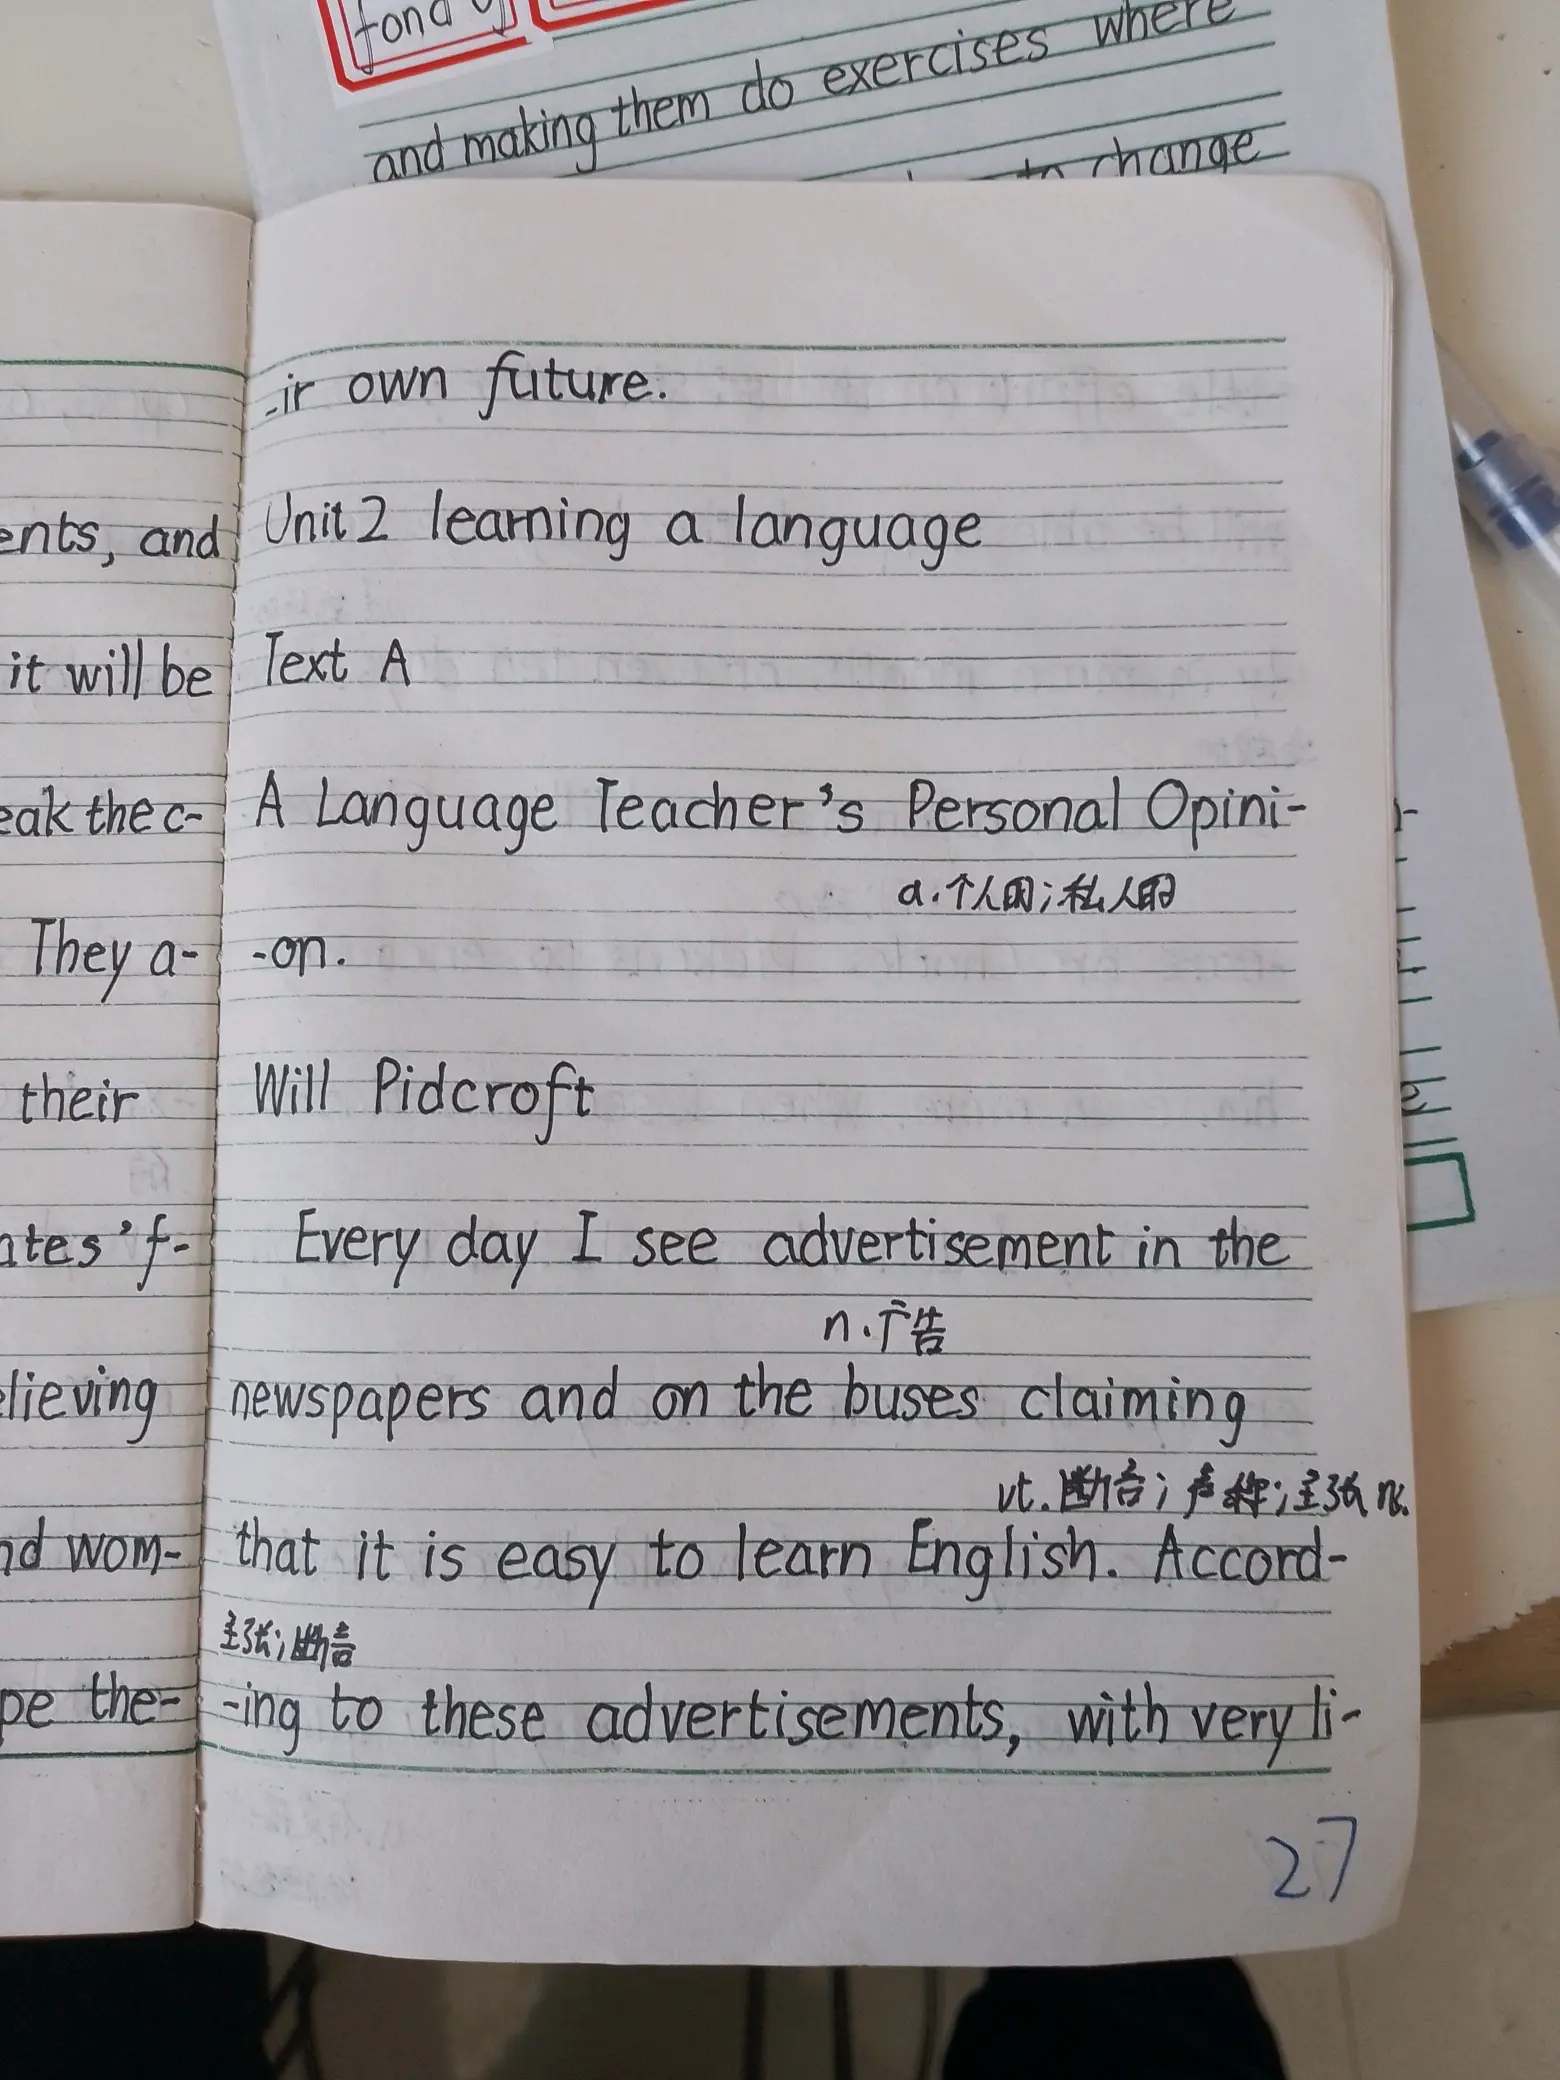 fond of
and making them do exercises where
to change
ents, and
it will be
eak the c-
They a-
their
ates' f-
elieving
nd wom-
pe the-
-ir own future.
Unit 2 learning a language
Text A
A Language Teacher's Personal Opini-
a.个人的;私人的
-on.
Will Pidcroft
Every day I see advertisement in the
n.广告
newspapers and on the buses claiming
vt.断言;声称;主张 n.
that it is easy to learn English. Accord-
主张;断言
-ing to these advertisements, with very li-
27